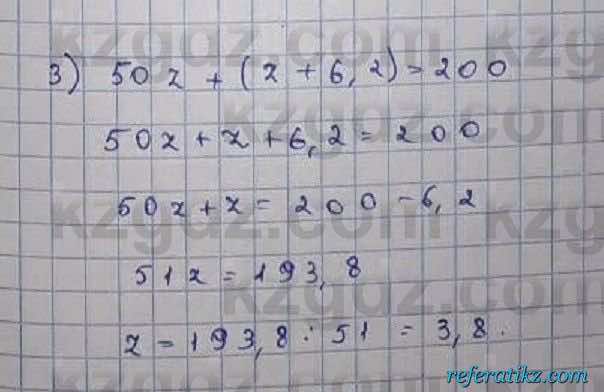 3) 50x + (x + 6,2) = 200
50x + x + 6,2 = 200
50x + x = 200 - 6,2
51x = 193,8
x = 193,8 : 51 = 3,8.
kzgdz.com
referatikz.com